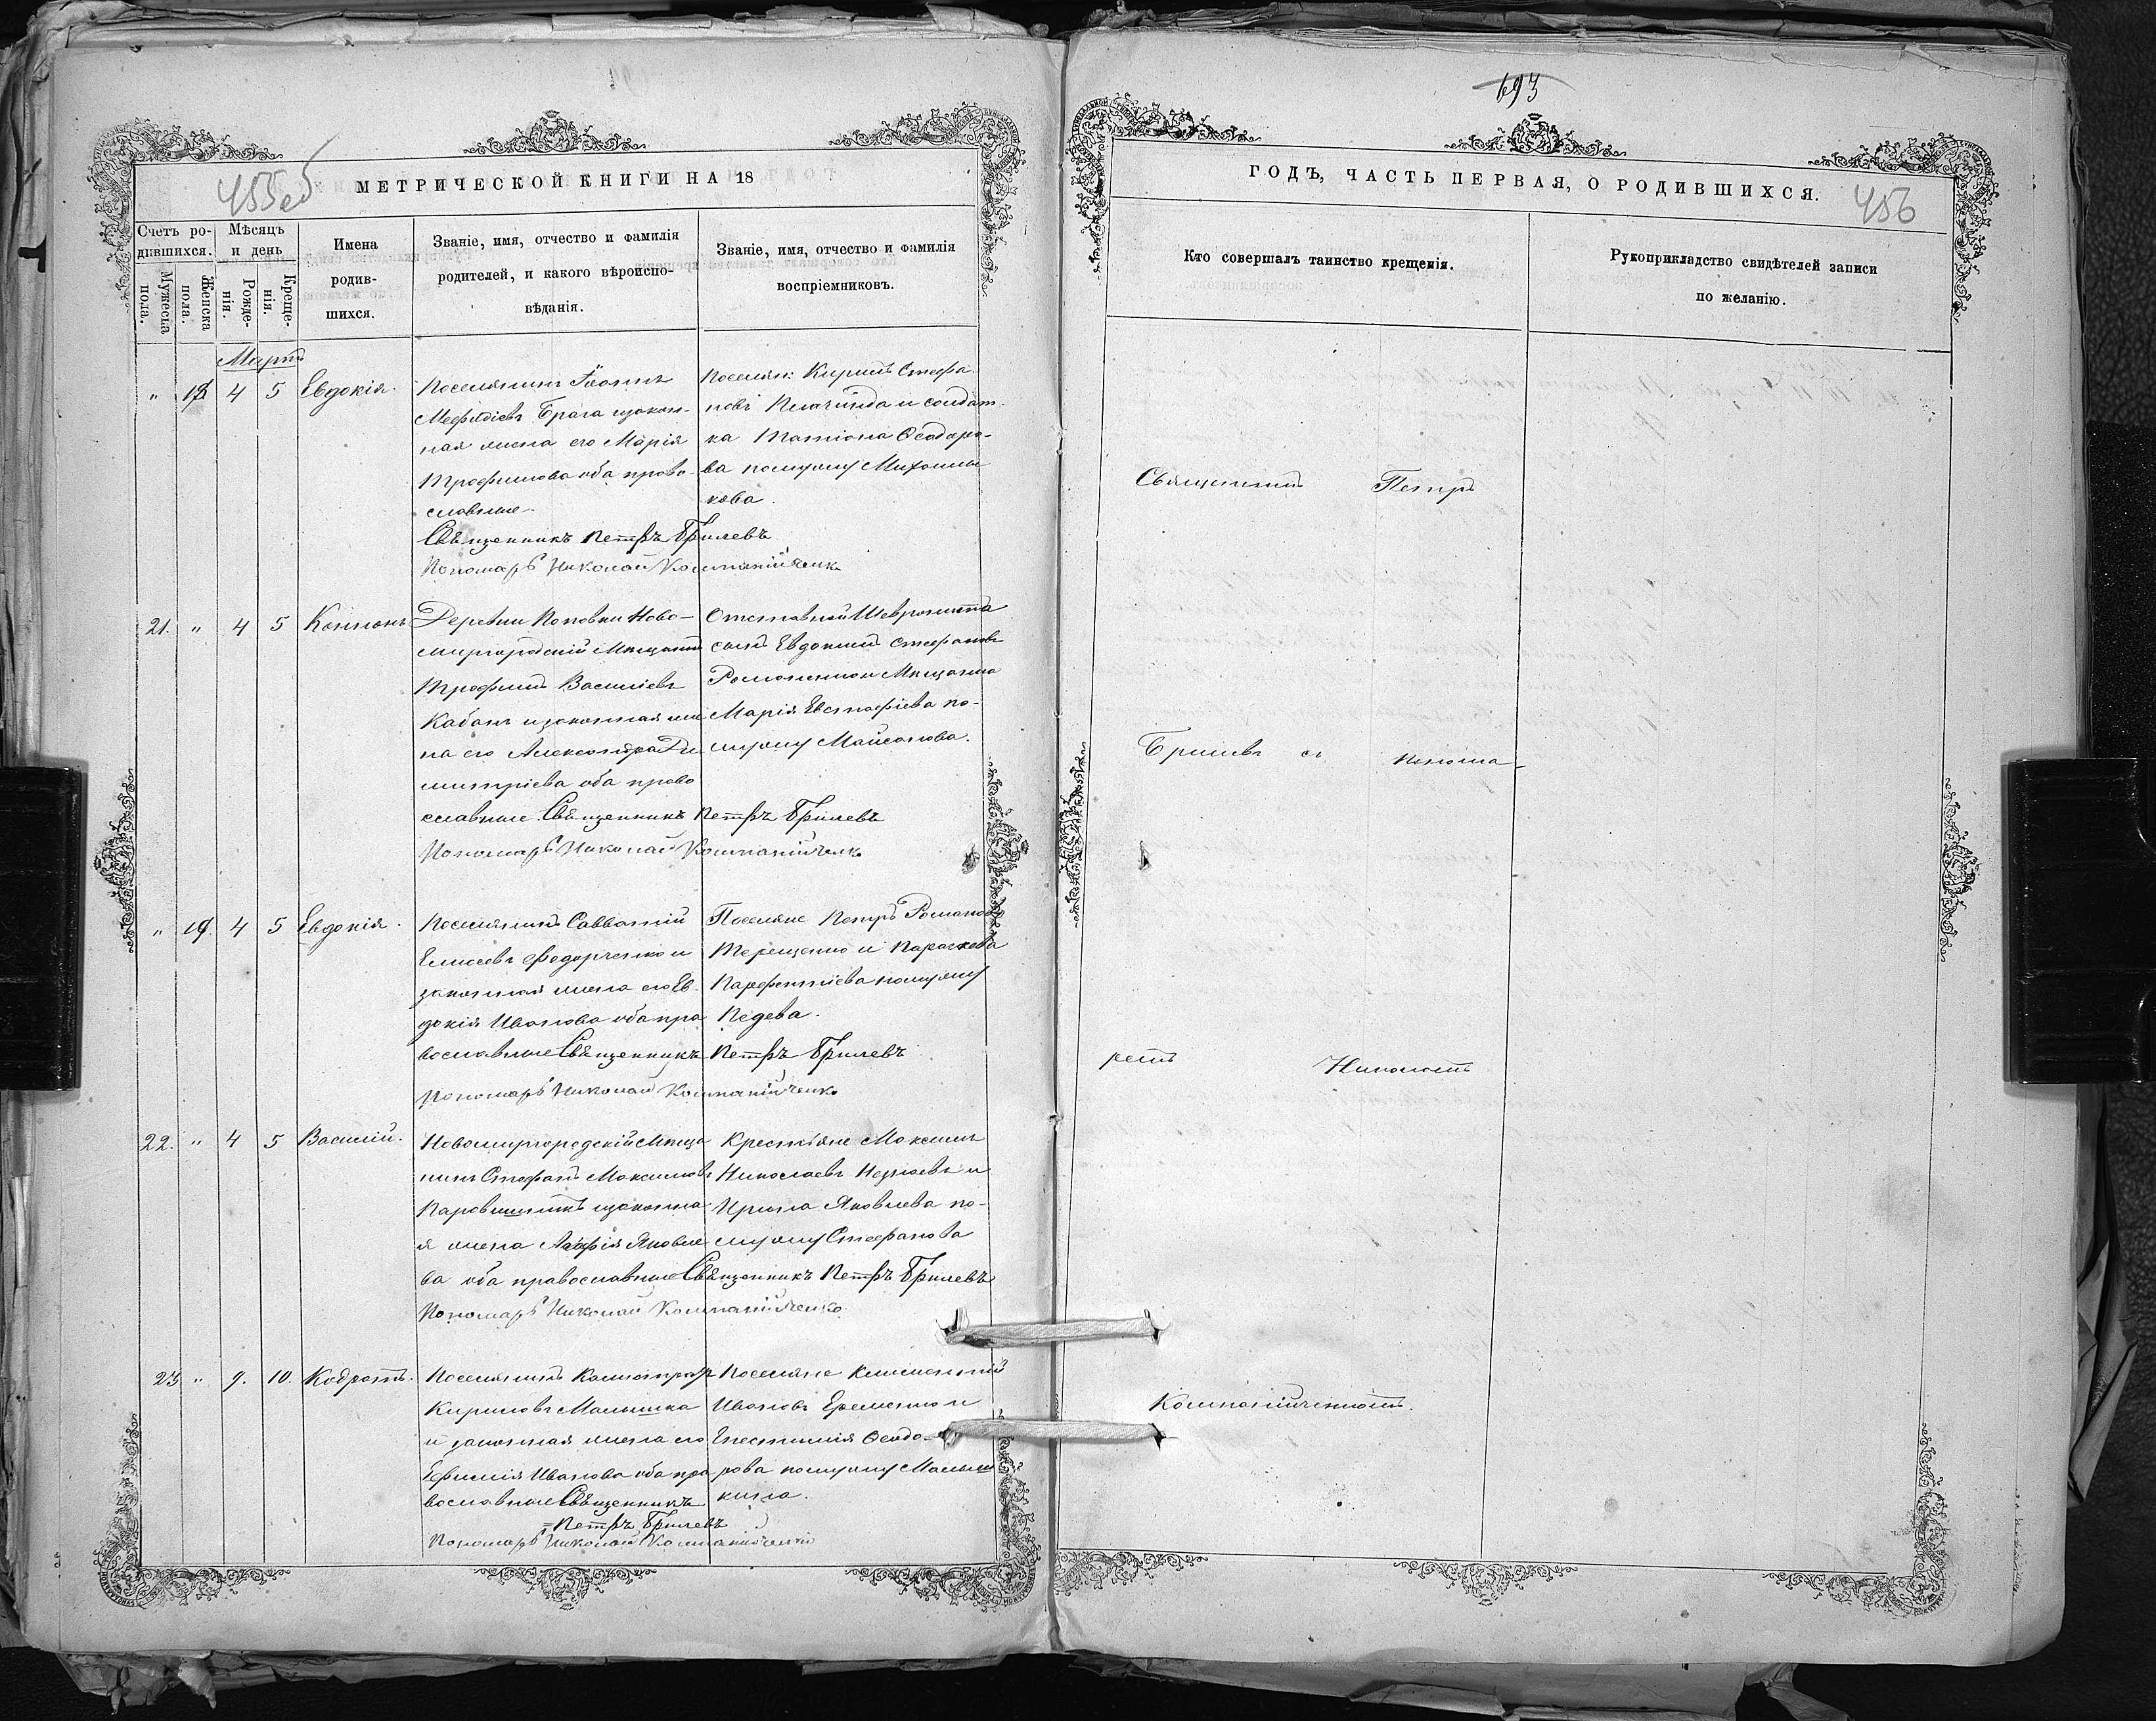 693
455об
МЕТРИЧЕСКОЙ КНИГИ НА 18
Счетъ ро-
дившихся.
Мужеска
пола.
Женска
пола.
Мѣсяцъ
и день
Рожде-
нія.
Креще-
нія.
Имена
родив-
шихся.
Званіе, имя, отчество и фамилія
родителей, и какого вѣроиспо-
вѣданія.
Званіе, имя, отчество и фамилія
воспріемниковъ.
Мартъ
" 18 4 5 Евдокія.
Поселянинъ Іоаннъ
Мефодіевъ Брага изакон-
ная жена его Марія
Трофимова оба право-
славные.
Священникъ Петръ Брилевъ
Пономарь Николай Компанійченко
Поселян: Кирилъ Стефа-
новъ и солдат-
ка Татіана Ѳеодоро-
ва помужу
кова.
21. " 4 5 Кононъ
Деревни Поповки Ново-
миргородскій Мѣщанинъ
Трофимъ Василіевъ
Кабанъ изаконная же
на его Александра Ди
митріева оба право
славные. Священникъ Петръ Брилевъ
Пономарь Николай Компанійченко
Отставной
сынъ Евдокимъ Стефановъ
Романенко и Мѣщанка
Марія Евстафіева по-
мужу
" 19. 4 5 Евдокія.
Поселянинъ Савватій
Елисеевъ Федорченко и
законная жена его Ев-
докія Иванова оба пра
вославные Священникъ Петръ Брилевъ
Пономарь Николай Компанійченко
Поселяне Петръ Романовъ
Терещенко и Параскева
Парфентіева помужу
Педева.
22. " 4 5 Василій.
Новомиргородскій Мѣща
нинъ Стефанъ Максимовъ
изаконна
я жена Яковле
ва оба православные Священникъ Петръ Брилевъ
Пономарь Николай Компанійченко
Крестьяне Максимъ
Николаевъ и
Ирина Яковлева по-
мужу Стефанова
23 " 9. 10. Кодратъ.
Поселянинъ
Кириловъ Малышка
и законная жена его
Ефимія Иванова оба пра
вославные Священникъ
Петръ Брилевъ
Пономарь Николай
Поселяне
Ивановъ Еременко и
Ѳеодо-
рова помужу Малыш
кина.
456
ГОДЪ, ЧАСТЬ ПЕРВАЯ, О РОДИВШИХСЯ.
Кто совершалъ таинство крещенія.
Рукоприкладство свидѣтелей записи
по желанію.
Священникъ Петръ
Брилевъ съ понома-
ремъ Николаемъ
Компанійченкомъ.